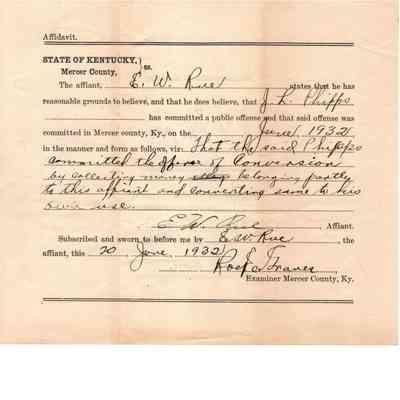 Affidavit.
STATE OF KENTUCKY, } ss.
Mercer County,
The affiant, E. W. Rue states that he has
reasonable grounds to believe, and that he does believe, that J. L. Phipps
has committed a public offense and that said offense was
committed in Mercer county, Ky., on the June 1932
in the manner and form as follows, viz: That the said Phipps
committed the offense of Conversion
by collecting money belonging partly
to this affiant and converting same to his
own use.
E. W. Rue Affiant.
Subscribed and sworn to before me by E. W. Rue, the
affiant, this 20 June, 1932
Examiner Mercer County, Ky.